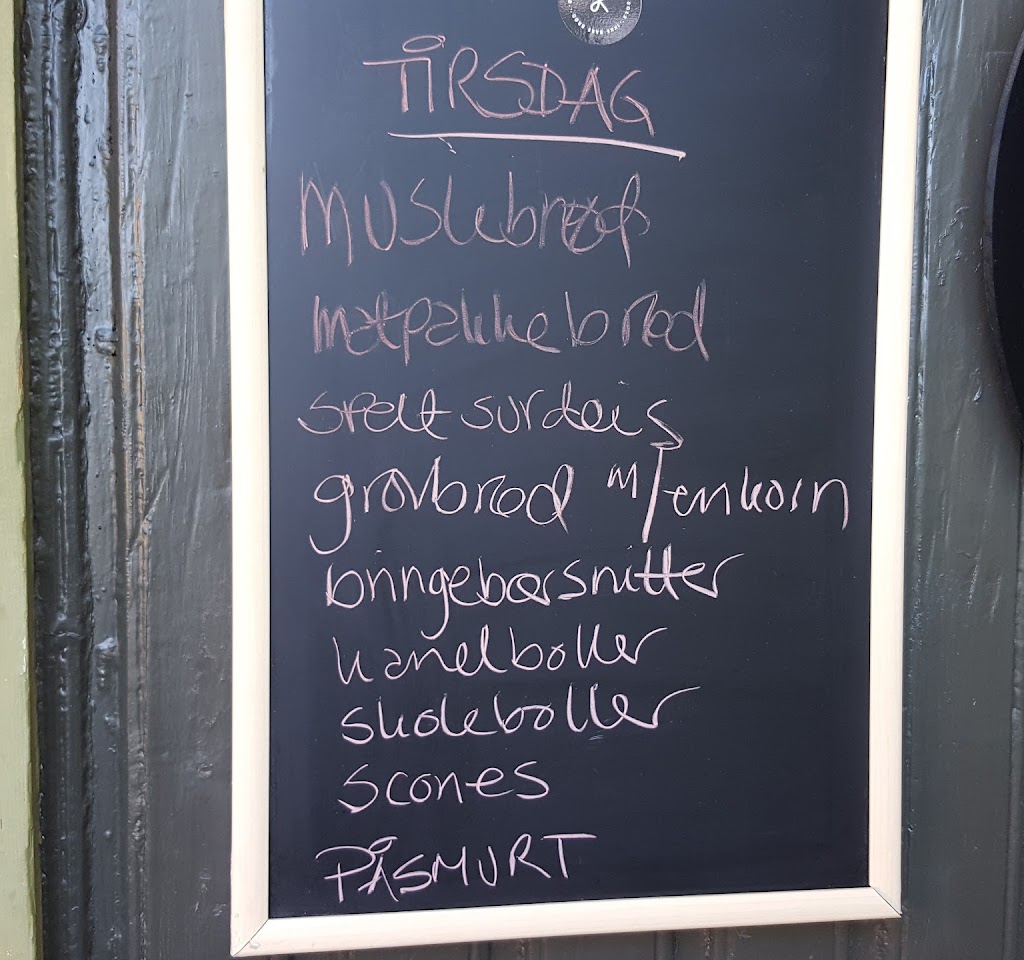 TIRSDAG
MUSLIbrød
matpakkebrød
spelt surdeig
grovbrød m/enkorn
bringebærsnitter
kanelboller
skoleboller
scones
PÅSMURT